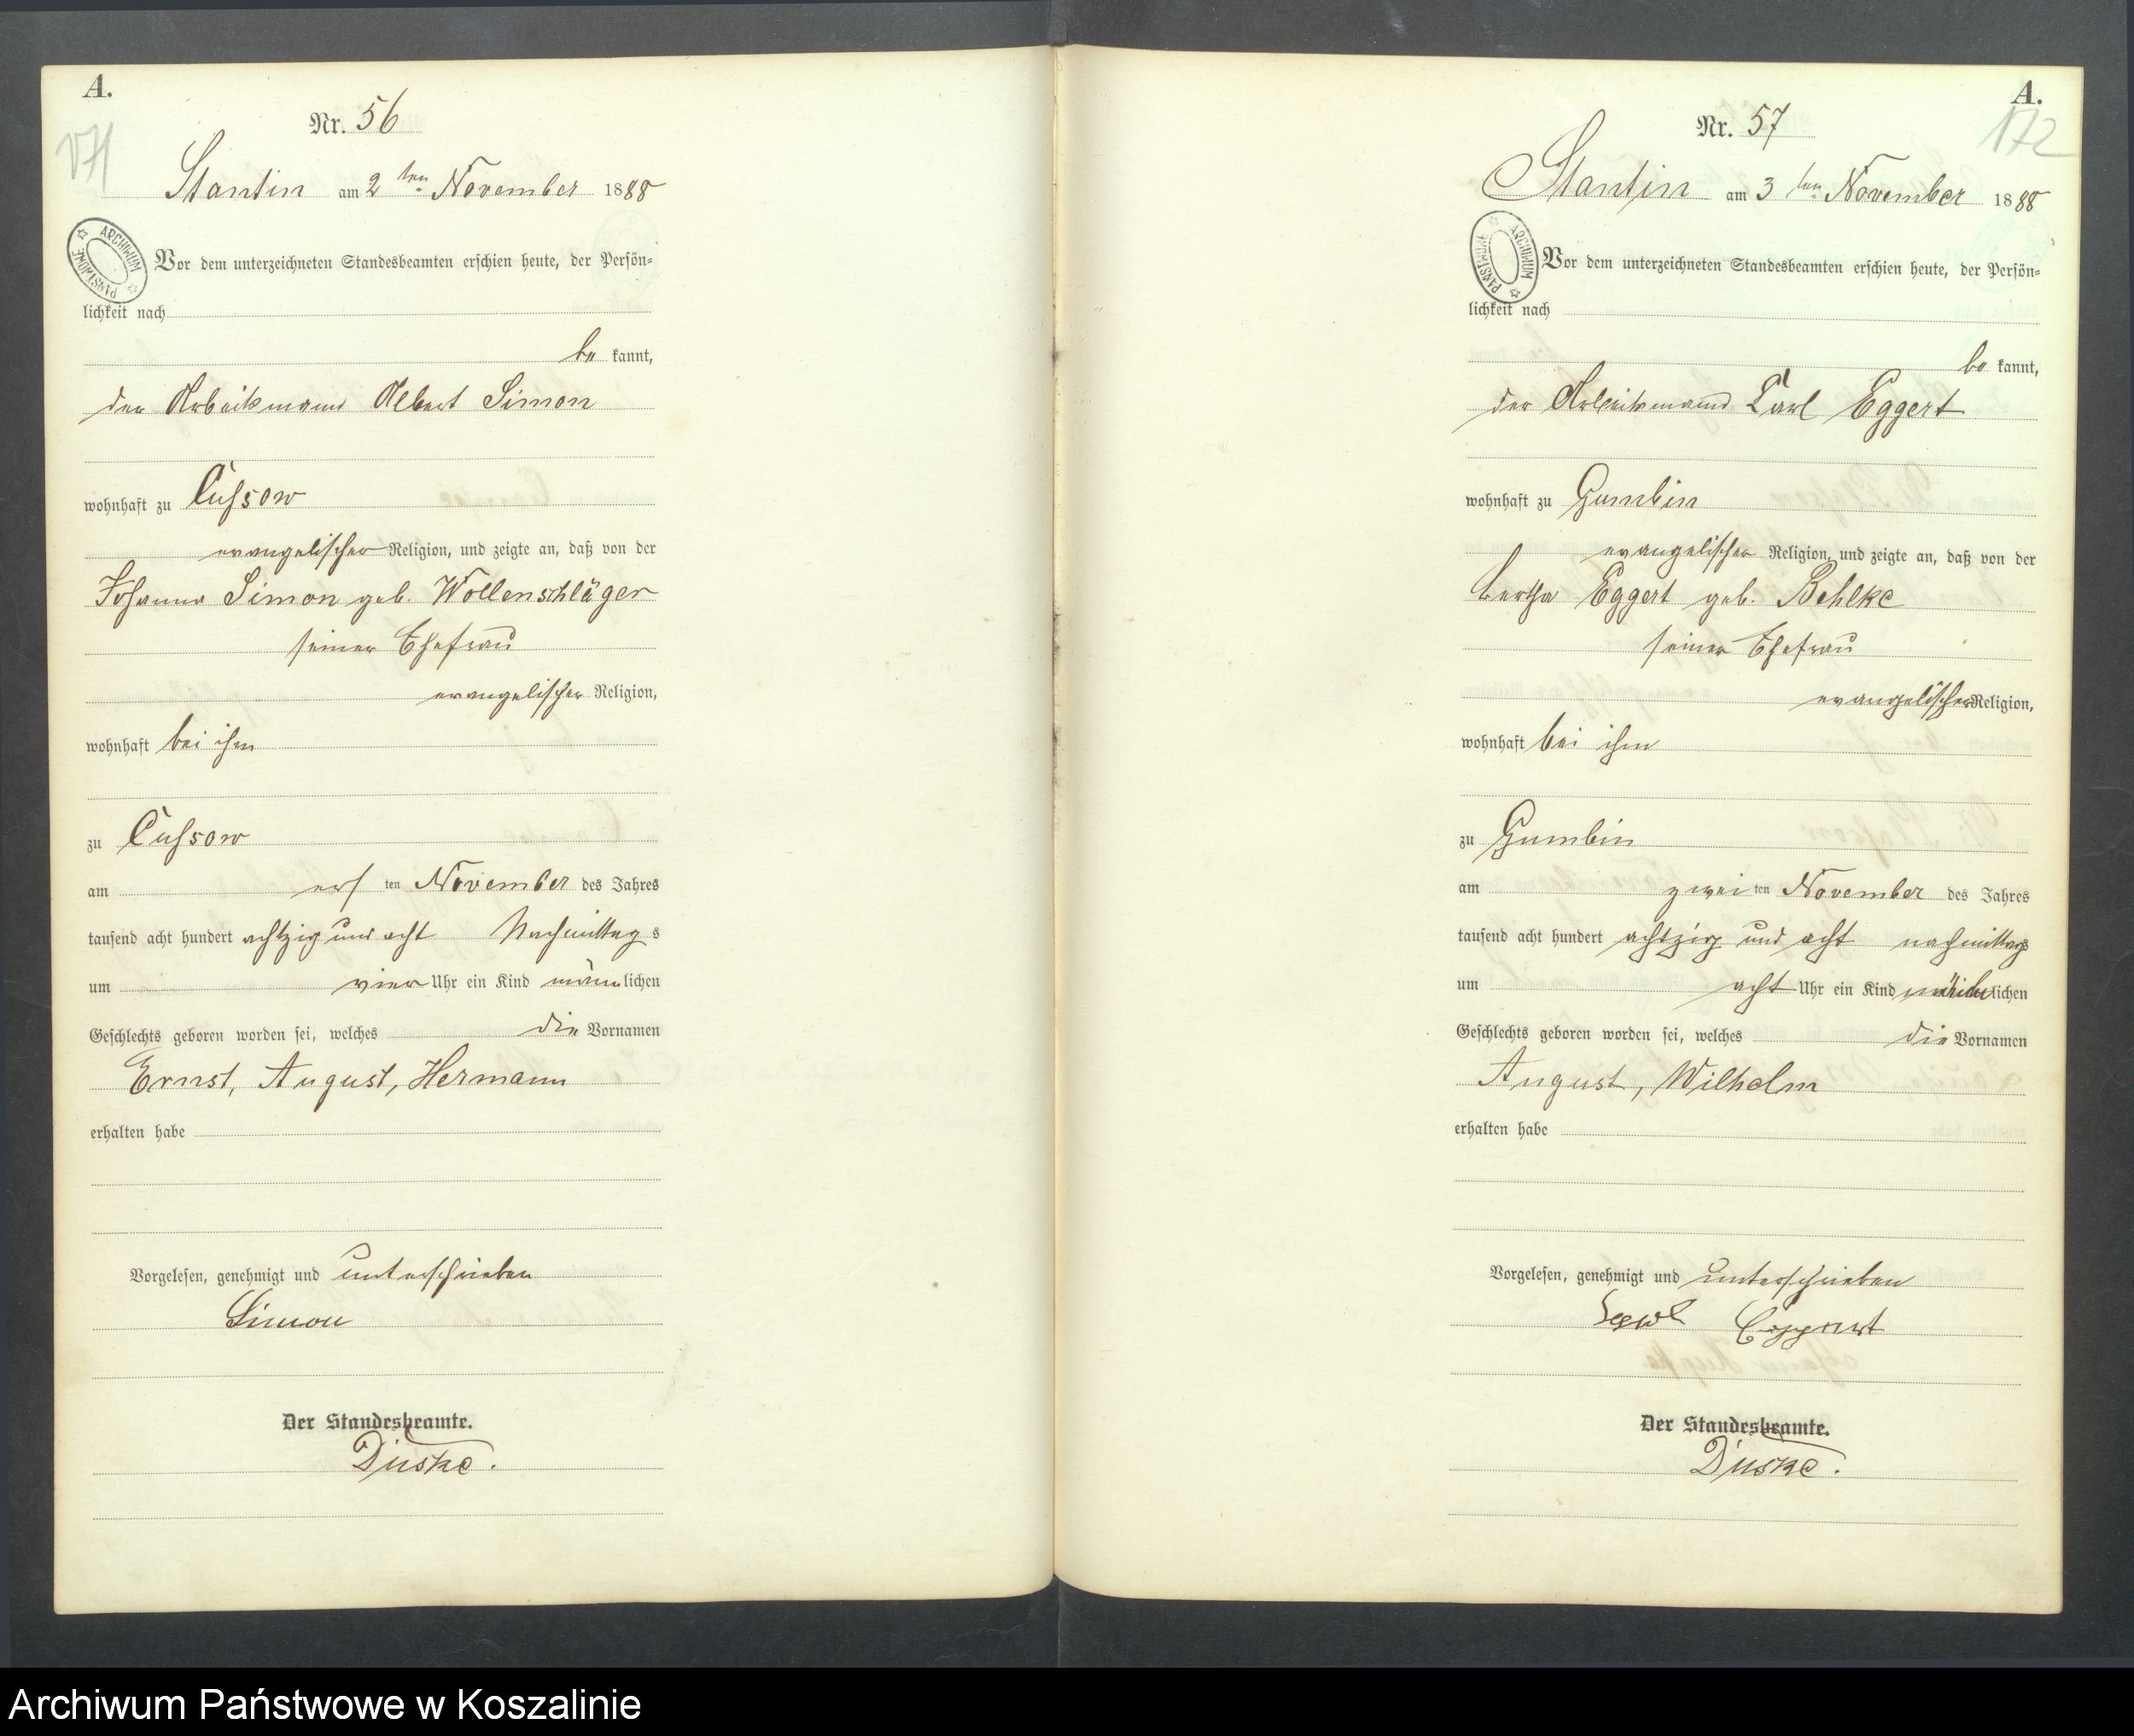 A.
171
Nr. 56
Stantin am 2ten November 1888
ARCHIWUM PAŃSTWOWE
Vor dem unterzeichneten Standesbeamten erschien heute, der Persön=
lichkeit nach
be kannt,
der Arbeitsmann Albert Simon
wohnhaft zu Cussow
evangelischer Religion, und zeigte an, daß von der
Johanna Simon geb. Wollenschläger
seiner Ehefrau
evangelischer Religion,
wohnhaft bei ihm
zu Cussow
am ersten November des Jahres
tausend acht hundert achtzig und acht Nachmittags
um vier Uhr ein Kind männlichen
Geschlechts geboren worden sei, welches die Vornamen
Ernst, August, Hermann
erhalten habe
Vorgelesen, genehmigt und unterschrieben
Simon
Der Standesbeamte.
Düske.
A.
172
Nr. 57
Stantin am 3ten November 1888
ARCHIWUM PAŃSTWOWE
Vor dem unterzeichneten Standesbeamten erschien heute, der Persön=
lichkeit nach
be kannt,
der Arbeitsmann Carl Eggert
wohnhaft zu Gumbin
evangelischer Religion, und zeigte an, daß von der
Bertha Eggert geb. Behlke
seiner Ehefrau
evangelischer Religion,
wohnhaft bei ihm
zu Gumbin
am zweiten November des Jahres
tausend acht hundert achtzig und acht nachmittags
um acht Uhr ein Kind männlichen
Geschlechts geboren worden sei, welches die Vornamen
August, Wilhelm
erhalten habe
Vorgelesen, genehmigt und unterschrieben
Carl Eggert
Der Standesbeamte.
Düske.
Archiwum Państwowe w Koszalinie